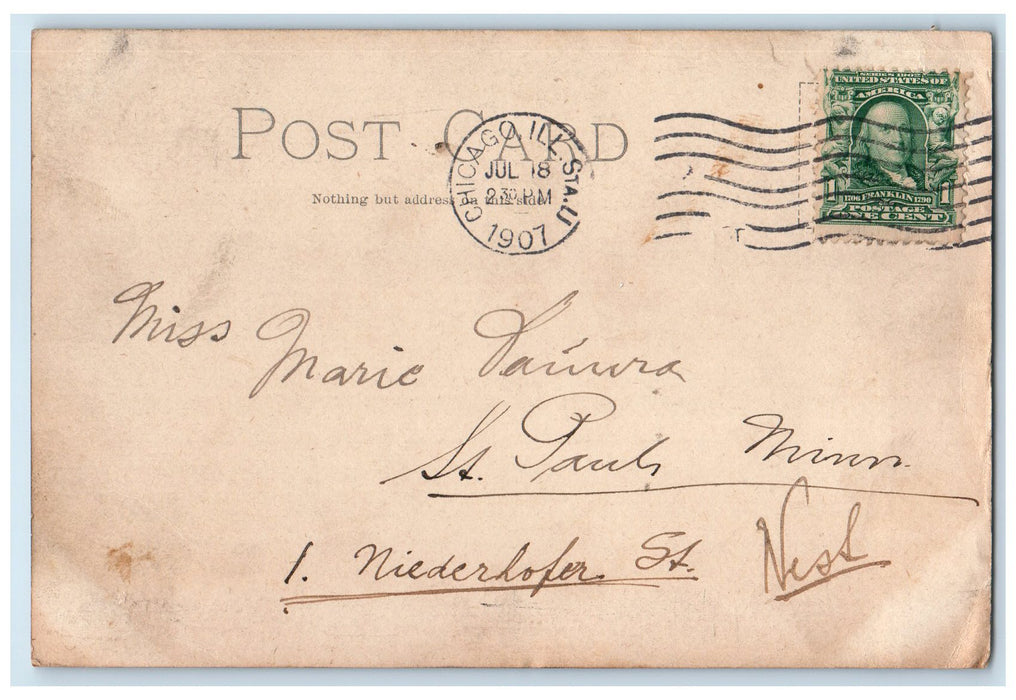 POST CARD
Nothing but address on this side.
CHICAGO, ILL. STA. U
JUL 18
2 30 PM
1907
SERIES 1902
UNITED STATES OF
AMERICA
1 1706 FRANKLIN 1790 1
POSTAGE
ONE CENT
Miss Marie
St. Paul, Minn.
1. Niederhofer St. West